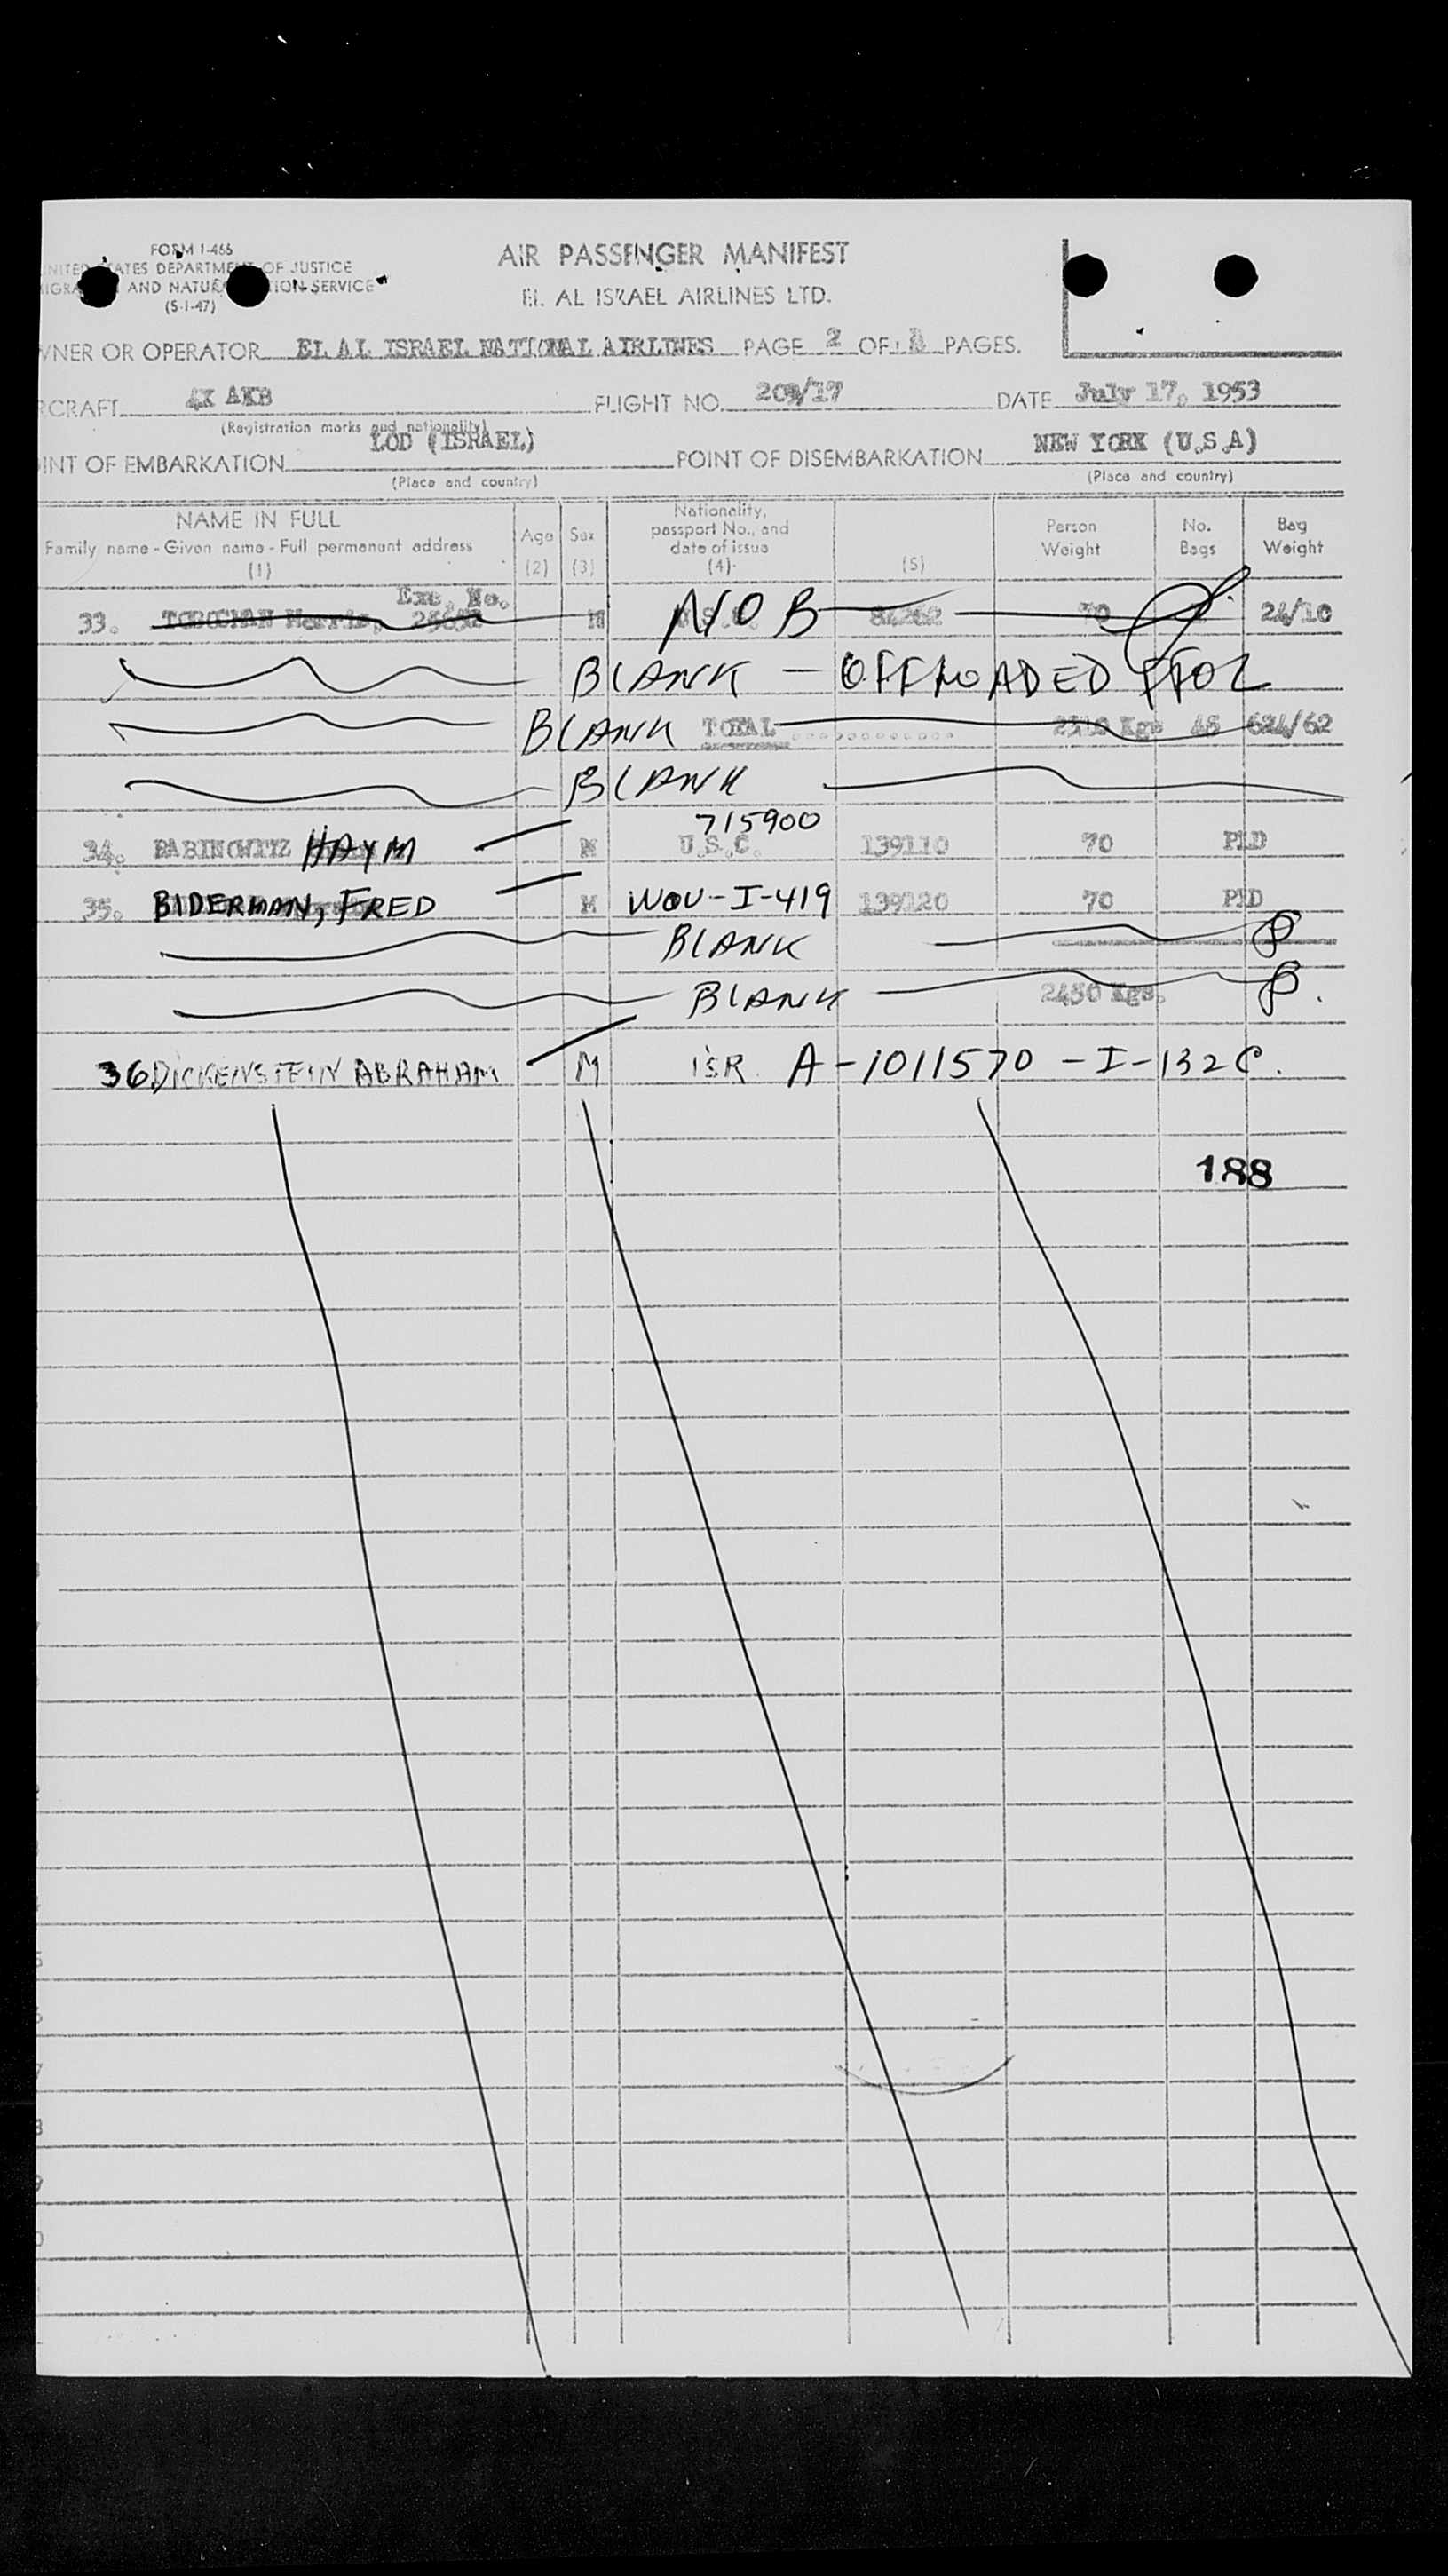 FORM I-466
UNITED STATES DEPARTMENT OF JUSTICE
AND SERVICE
(5-1-47)
AIR PASSENGER MANIFEST
EL AL ISRAEL AIRLINES LTD.
WNER OR OPERATOR EL AL ISRAEL NATIONAL AIRLINES PAGE 2 OF PAGES.
RCRAFT 4X AKB FLIGHT NO. /17 DATE July 17, 1953
(Registration marks and nationality)
INT OF EMBARKATION LOD (ISRAEL) POINT OF DISEMBARKATION NEW YORK (U.S.A)
(Place and country) (Place and country)
NAME IN FULL Age Sex Nationality, passport No., and date of issue Person Weight No. Bags Bag Weight
Family name - Given name - Full permanent address
(1) (2) (3) (4) (5)
Exc. No.
33. Morris, M NOB 70 24/10
BLANK - OFFLOADED
BLANK TOTAL Kgs 624/62
BLANK
715900
34. RABINOWITZ HAYM M U.S.C. 139110 70 PLD
35. BIDERMAN, FRED M WOV-I-419 139120 70
BLANK
BLANK 2450 Kgs.
36 DICKENSTEIN ABRAHAM M ISR. A-1011570 - I-132C.
188